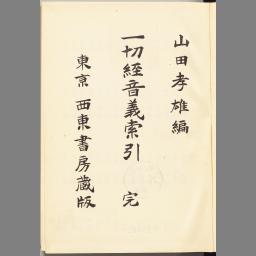 山田孝雄編
一切經音義索引 完
東京 西東書房藏版